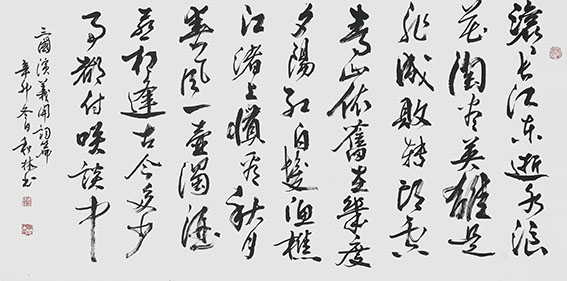 滚〻长江东逝水浪
花淘尽英雄是
非成敗转头空
青山依舊在幾度
夕陽红白髮渔樵
江渚上惯看秋月
春风一壶濁酒
喜相逢古今多少
事都付咲谈中
三國演義開詞篇
辛卯冬日